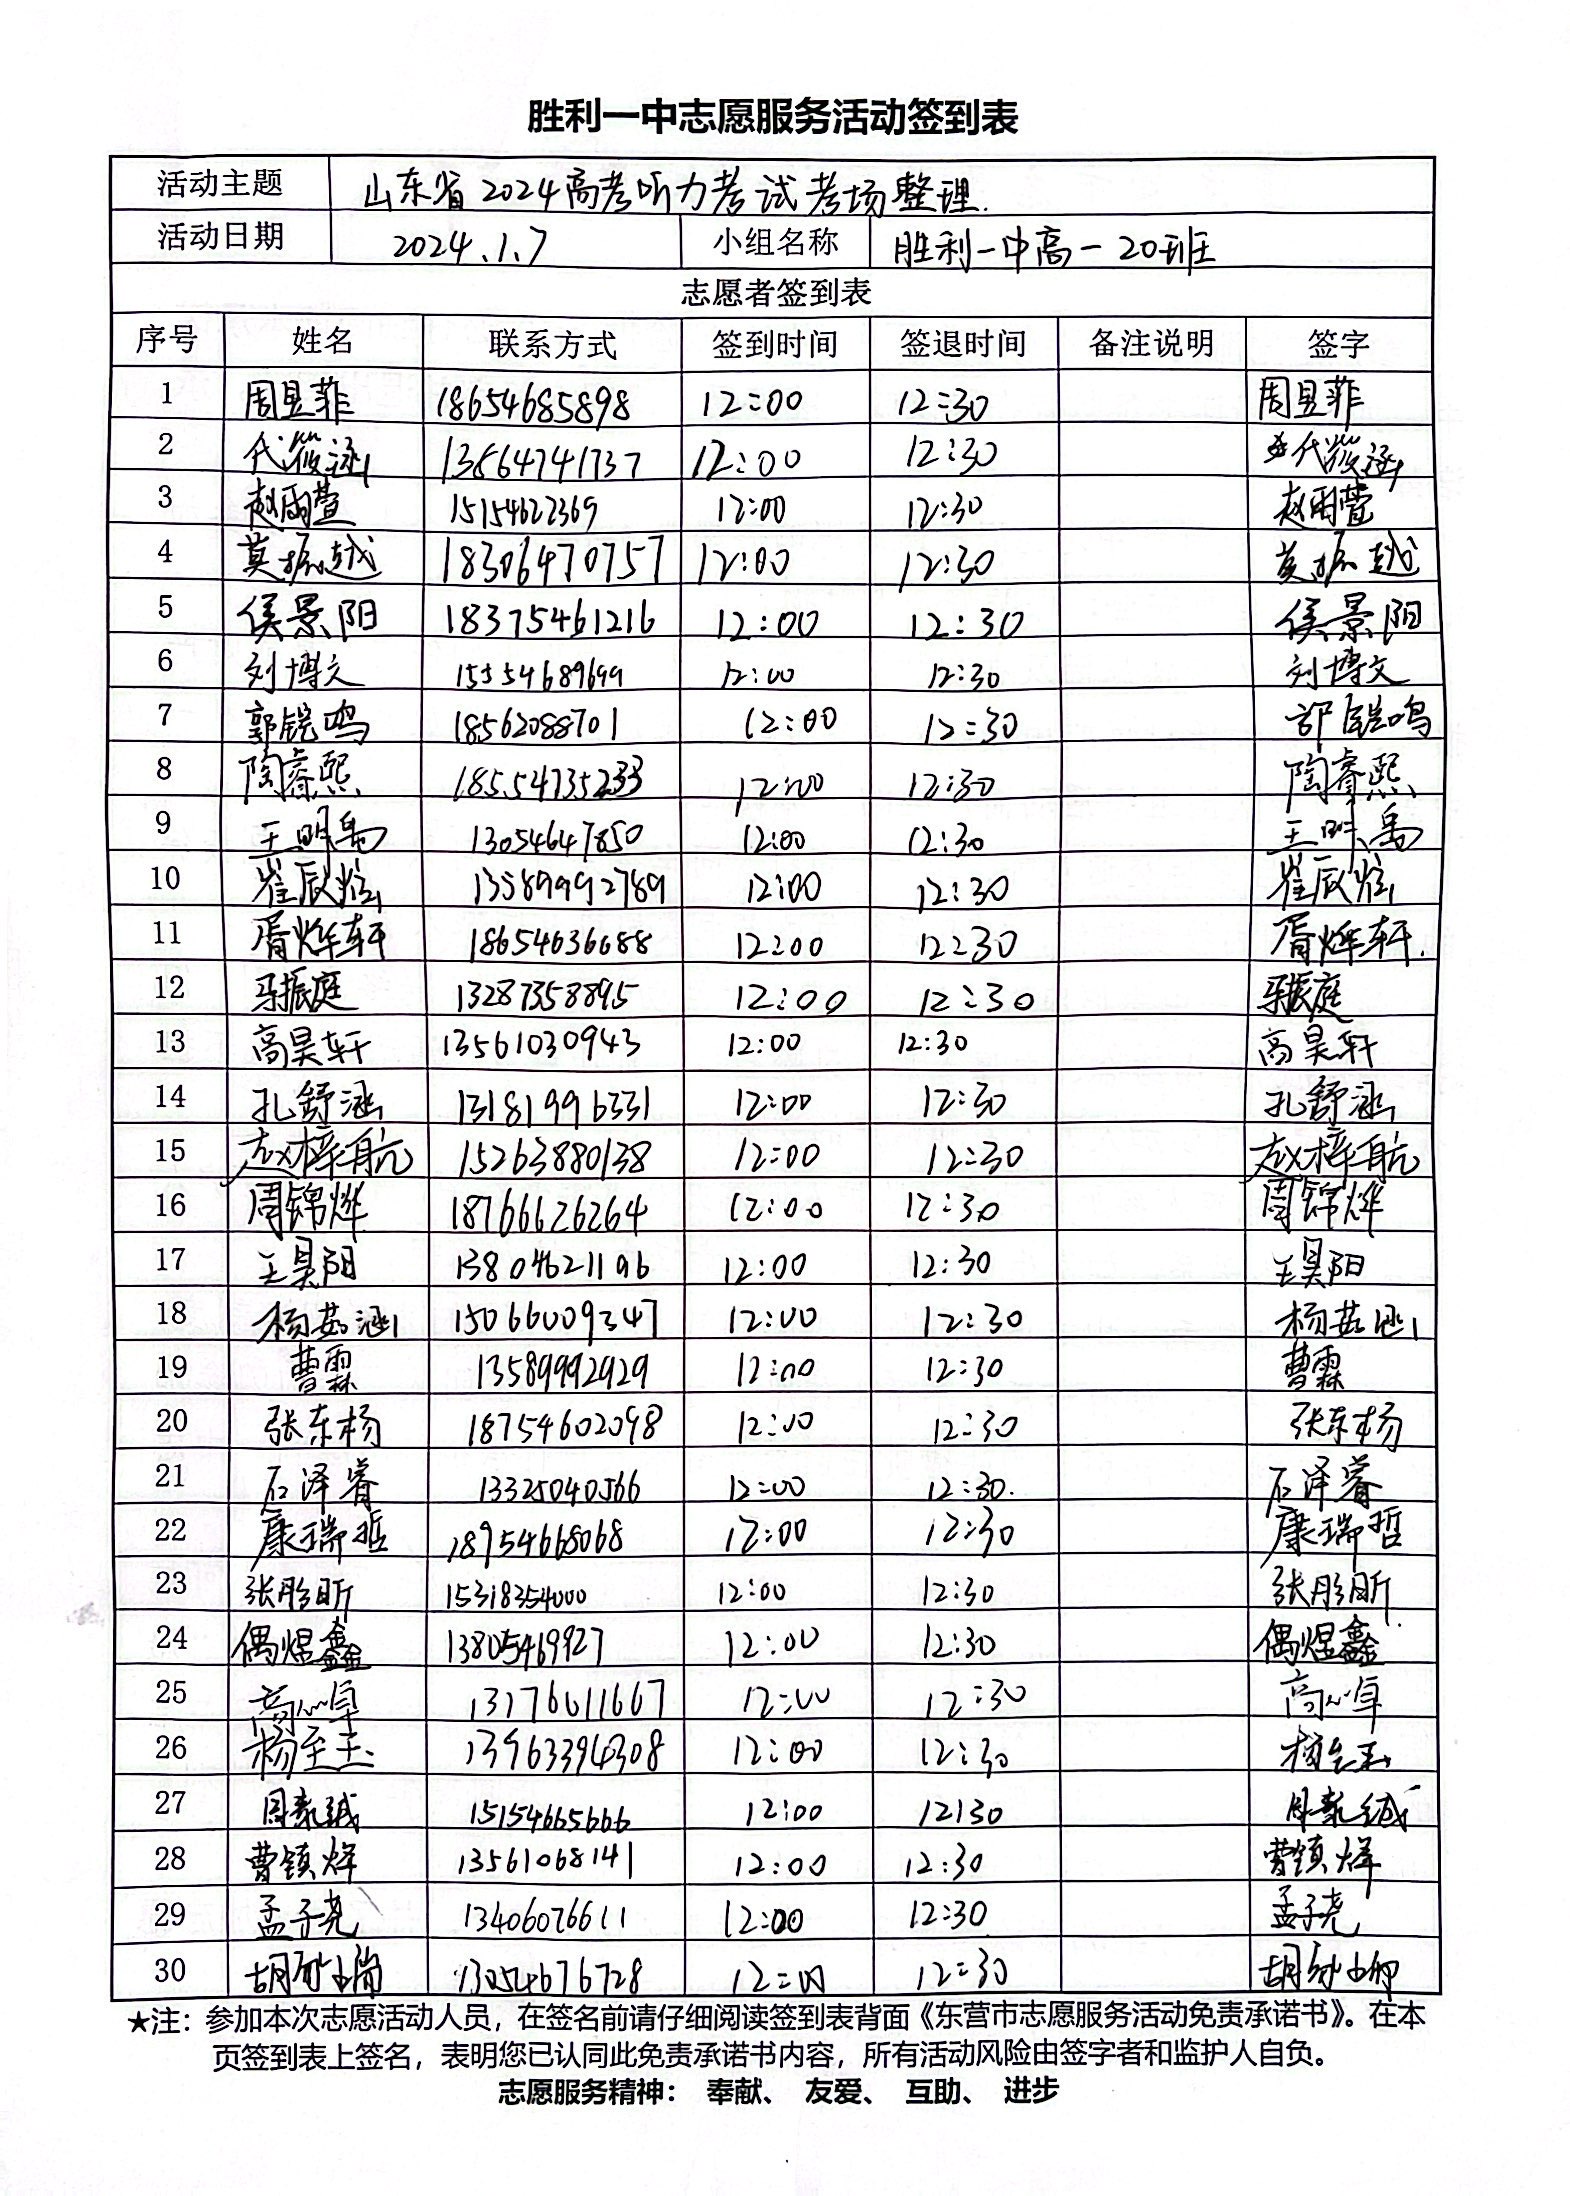 胜利一中志愿服务活动签到表
活动主题 山东省2024高考听力考试考场整理.
活动日期 2024.1.7 小组名称 胜利一中高一20班
志愿者签到表
序号 姓名 联系方式 签到时间 签退时间 备注说明 签字
1 周昱菲 18654685898 12:00 12:30 周昱菲
2 代筱涵 13864741737 12:00 12:30 代筱涵
3 赵雨萱 15154622369 12:00 12:30 赵雨萱
4 莫振越 18306470757 12:00 12:30 莫振越
5 侯景阳 18375461216 12:00 12:30 侯景阳
6 刘博文 15554689699 12:00 12:30 刘博文
7 郭铠鸣 18562088701 12:00 12:30 郭铠鸣
8 陶睿熙 18554735233 12:00 12:30 陶睿熙
9 王明禹 13054647850 12:00 12:30 王明禹
10 崔辰炫 13589992789 12:00 12:30 崔辰炫
11 胥烨轩 18654636688 12:00 12:30 胥烨轩.
12 马振庭 13287358895 12:00 12:30 马振庭
13 高昊轩 13561030943 12:00 12:30 高昊轩
14 孔舒涵 13181996331 12:00 12:30 孔舒涵
15 赵梓航 15263880138 12:00 12:30 赵梓航
16 周锦烨 18766626264 12:00 12:30 周锦烨
17 王昊阳 13804621196 12:00 12:30 王昊阳
18 杨茹涵 15066009347 12:00 12:30 杨茹涵
19 曹霖 13589992929 12:00 12:30 曹霖
20 张东杨 18754602098 12:00 12:30 张东杨
21 石泽睿 13325040566 12:00 12:30. 石泽睿
22 康瑞哲 18954668068 12:00 12:30 康瑞哲
23 张彤昕 15318354000 12:00 12:30 张彤昕
24 偶煜鑫 13805469927 12:00 12:30 偶煜鑫
25 高心卓 13176011667 12:00 12:30 高心卓
26 杨至玉 13963394308 12:00 12:30 杨至玉
27 周豪诚 15154665666 12:00 12:30 周豪诚
28 曹镇烊 13561068141 12:00 12:30 曹镇烊
29 孟子尧 13406076611 12:00 12:30 孟子尧
30 13054676728 12:00 12:30
★注：参加本次志愿活动人员，在签名前请仔细阅读签到表背面《东营市志愿服务活动免责承诺书》。在本
页签到表上签名，表明您已认同此免责承诺书内容，所有活动风险由签字者和监护人自负。
志愿服务精神： 奉献、 友爱、 互助、 进步